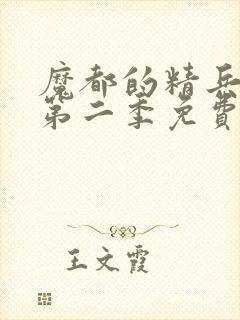 魔都的精兵
第二季免費
王文霞